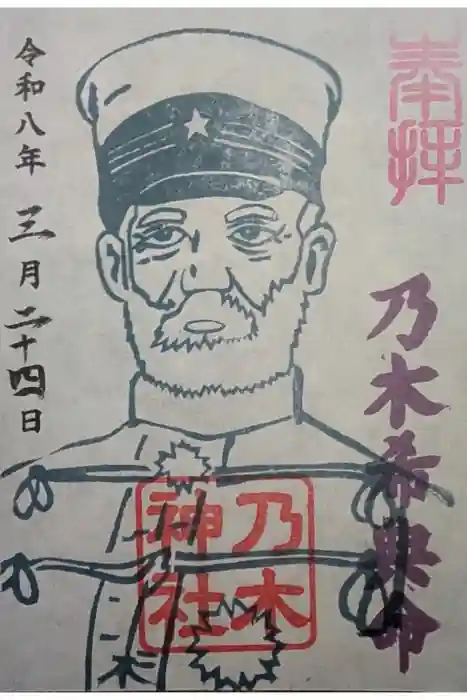 奉拝
乃木希典命
乃木
神社
令和八年三月二十四日